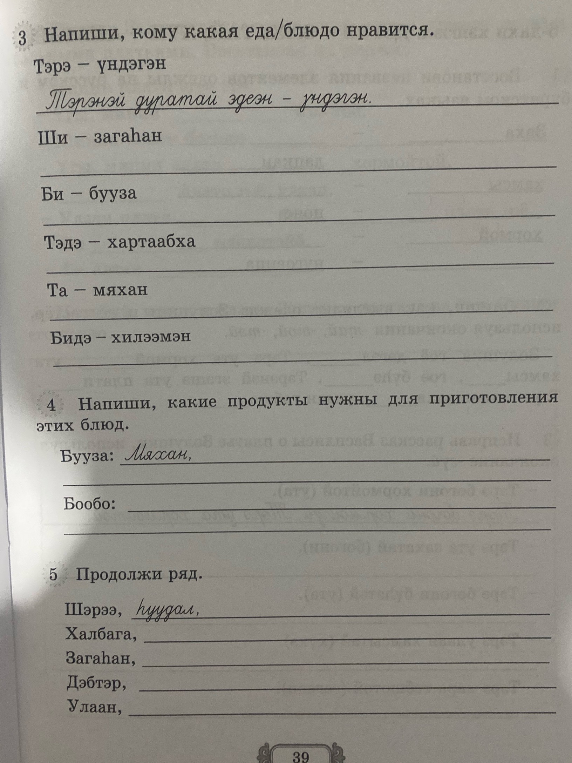 3 Напиши, кому какая еда/блюдо нравится.
Тэрэ – үндэгэн
Тэрэнэй дуратай эдеэн – үндэгэн.
Ши – загаһан
Би – бууза
Тэдэ – хартаабха
Та – мяхан
Бидэ – хилээмэн
4 Напиши, какие продукты нужны для приготовления
этих блюд.
Бууза: Мяхан,
Бообо:
5 Продолжи ряд.
Шэрээ, һуудал,
Халбага,
Загаһан,
Дэбтэр,
Улаан,
39